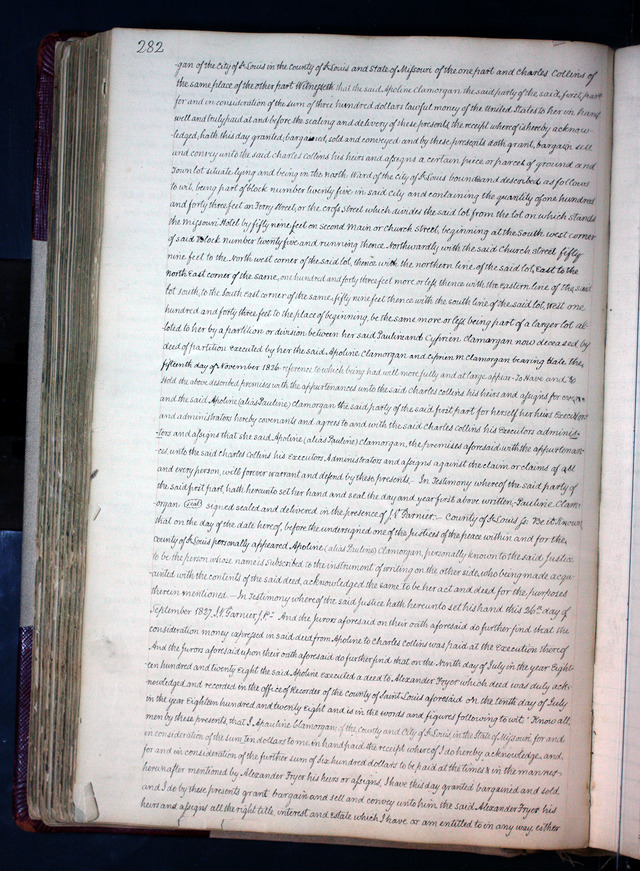 282
gan of the City of St Louis in the County of St Louis and State of Missouri of the one part and Charles Collins of
the same place of the other part Witnesseth that the said Apoline Clamorgan the said party of the said first part
for and in consideration of the sum of three hundred dollars lawful money of the United States to her in hand
well and truly paid at and before the sealing and delivery of these presents, the receipt whereof is hereby acknow-
ledged, hath this day granted, bargained, sold and conveyed and by these presents doth grant, bargain sell
and convey unto the said Charles Collins his heirs and assigns a certain piece or parcel of ground and
Town lot situate lying and being in the North Ward of the City of St Louis bounded and described as follows
to wit, being part of block number twenty five in said City and containing the quantity of one hundred
and forty three feet on Ferry Street, or the cross street which divides the said lot from the lot on which stands
the Missouri Hotel by fifty nine feet on Second Main or Church street, beginning at the South west corner
of said Block number twenty five and running thence Northwardly with the said Church street fifty
nine feet to the North west corner of the said lot, thence with the northern line of the said lot, East to the
North East corner of the same, one hundred and forty three feet more or less thence with the eastern line of the said
lot south, to the South East corner of the same, fifty nine feet thence with the south line of the said lot, West one
hundred and forty three feet to the place of beginning, be the same more or less being part of a larger lot al-
loted to her by a partition or division between her said Pauline and Cyprien Clamorgan now deceased by
deed of partition executed by her the said Apoline Clamorgan and Cyprien M. Clamorgan bearing date the
fifteenth day of November 1826 reference to which being had will more fully and at large appear. To Have and to
Hold the above described premises with the appurtenances unto the said Charles Collins his heirs and assigns for ever
and the said Apoline (alias Pauline) Clamorgan the said party of the said first part for herself her heirs Executors
and administrators hereby covenants and agrees to and with the said Charles Collins his Executors adminis-
-tors and assigns that she said Apoline (alias Pauline) Clamorgan, the premises aforesaid with the appurtenan-
ces, unto the said Charles Collins his Executors Administrators and assigns against the claim or claims of all
and every person, will forever warrant and defend by these presents,- In Testimony whereof the said party of
the said first part, hath hereunto set her hand and seal the day and year first above written,- Pauline Clam-
organ (seal) signed sealed and delivered in the presence of J.V. Garnier,- County of St Louis ss. Be it Known
that on the day of the date hereof, before the undersigned one of the justices of the peace within and for the,
County of St Louis personally appeared Apoline (alias Pauline) Clamorgan, personally known to the said justice
to be the person whose name is subscribed to the instrument of writing on the other side, who being made acqu-
-ainted with the contents of the said deed, acknowledged the same to be her act and deed for the purposes
therein mentioned.- In Testimony whereof the said justice hath hereunto set his hand this 26th day of
September 1827. J.V. Garnier J.P. And the jurors aforesaid on their oath aforesaid do further find that the
consideration money expressed in said deed from Apoline to Charles Collins was paid at the Execution thereof
And the jurors aforesaid upon their oath aforesaid do further find that on the Ninth day of July in the year Eight-
-een hundred and twenty Eight the said Apoline executed a deed to Alexander Fryer which deed was duly ack-
nowledged and recorded in the office of Recorder of the County of Saint Louis aforesaid on the tenth day of July
in the year Eighteen hundred and twenty eight and is in the words and figures following to wit. "Know all
men by these presents, that I, Apauline Clamorgan, of the County and City of St Louis, in the State of Missouri for and
in consideration of the sum Ten dollars to me in hand paid the receipt whereof I do hereby acknowledge, and,
for and in consideration of the further sum of six hundred dollars to be paid at the times & in the manner
hereinafter mentioned by Alexander Fryer his heirs or assigns, I have this day granted bargained and sold
and I do by these presents grant bargain and sell and convey unto him the said Alexander Fryer his
heirs and assigns all the right, title, interest and Estate which I have or am entitled to in any way, either